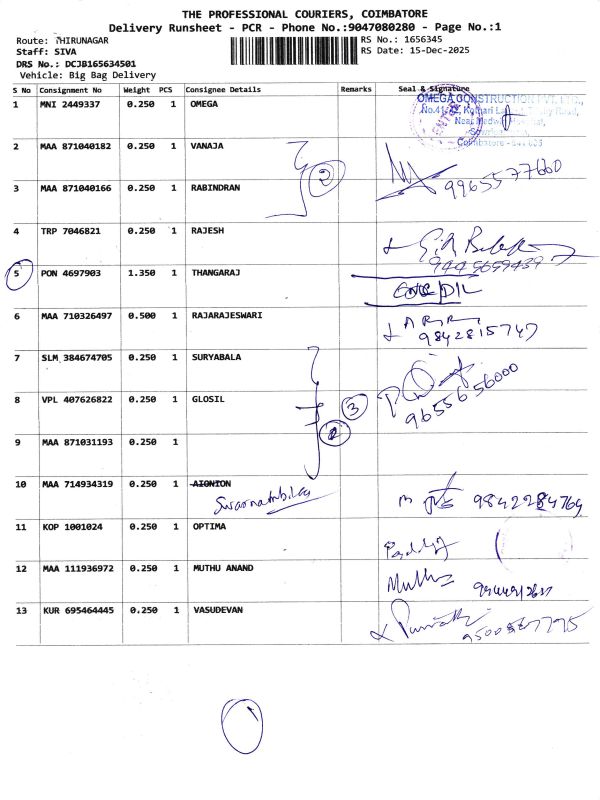 THE PROFESSIONAL COURIERS, COIMBATORE
Delivery Runsheet - PCR - Phone No.:9047080280 - Page No.:1
Route: THIRUNAGAR
RS No.: 1656345
Staff: SIVA
RS Date: 15-Dec-2025
DRS No.: DCJB165634501
Vehicle: Big Bag Delivery
S No Consignment No Weight PCS Consignee Details Remarks Seal & Signature
1 MNI 2449337 0.250 1 OMEGA
OMEGA CONSTRUCTION PVT. LTD.,
2 MAA 871040182 0.250 1 VANAJA
2
3 MAA 871040166 0.250 1 RABINDRAN 9965577660
4 TRP 7046821 0.250 1 RAJESH
9445659439
5 PON 4697903 1.350 1 THANGARAJ
6 MAA 710326497 0.500 1 RAJARAJESWARI
9842815747
7 SLM 384674705 0.250 1 SURYABALA
8 VPL 407626822 0.250 1 GLOSIL 3 9655656000
9 MAA 871031193 0.250 1
10 MAA 714934319 0.250 1 AIONION
9842284764
11 KOP 1001024 0.250 1 OPTIMA
12 MAA 111936972 0.250 1 MUTHU ANAND
Muthu
13 KUR 695464445 0.250 1 VASUDEVAN